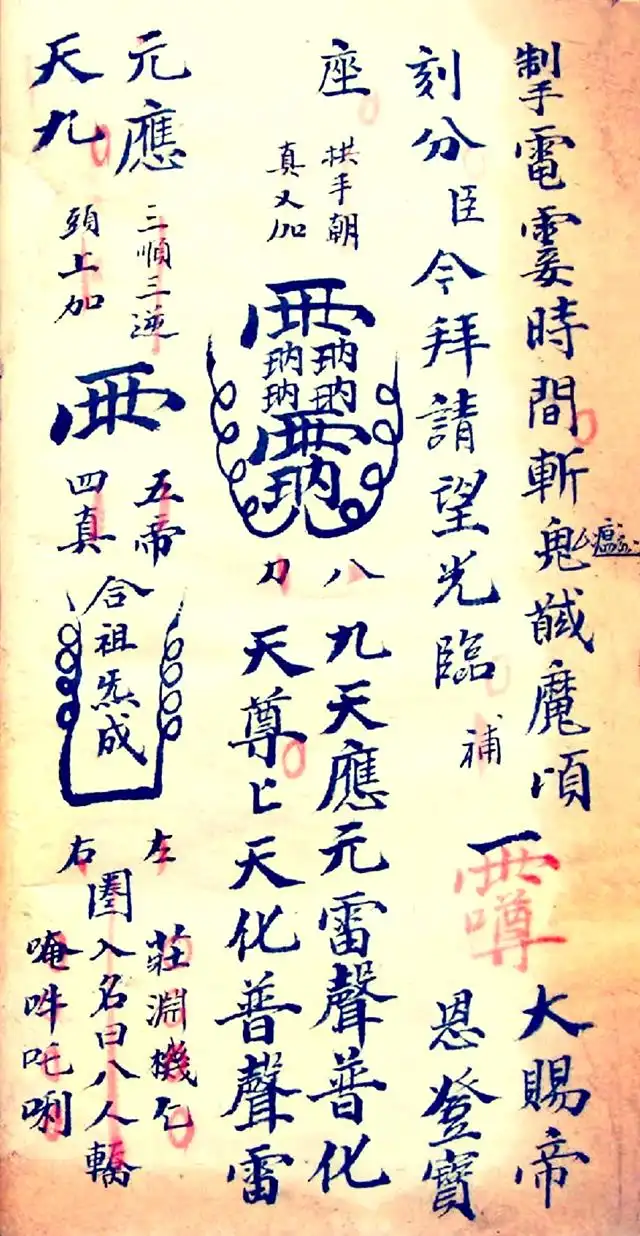 掣電霎時間斬鬼馘魔頃
刻分臣今拜請望光臨補
大賜帝
恩登寶
座
拱手朝
真又加
八
刀
九天應元雷聲普化
天尊匕天化普聲雷
元應
天九
三順三逆
頭上加
五帝
四真
合祖炁成
左
右
莊淵機乞
圈入名曰八人轎
唵吽吒唎